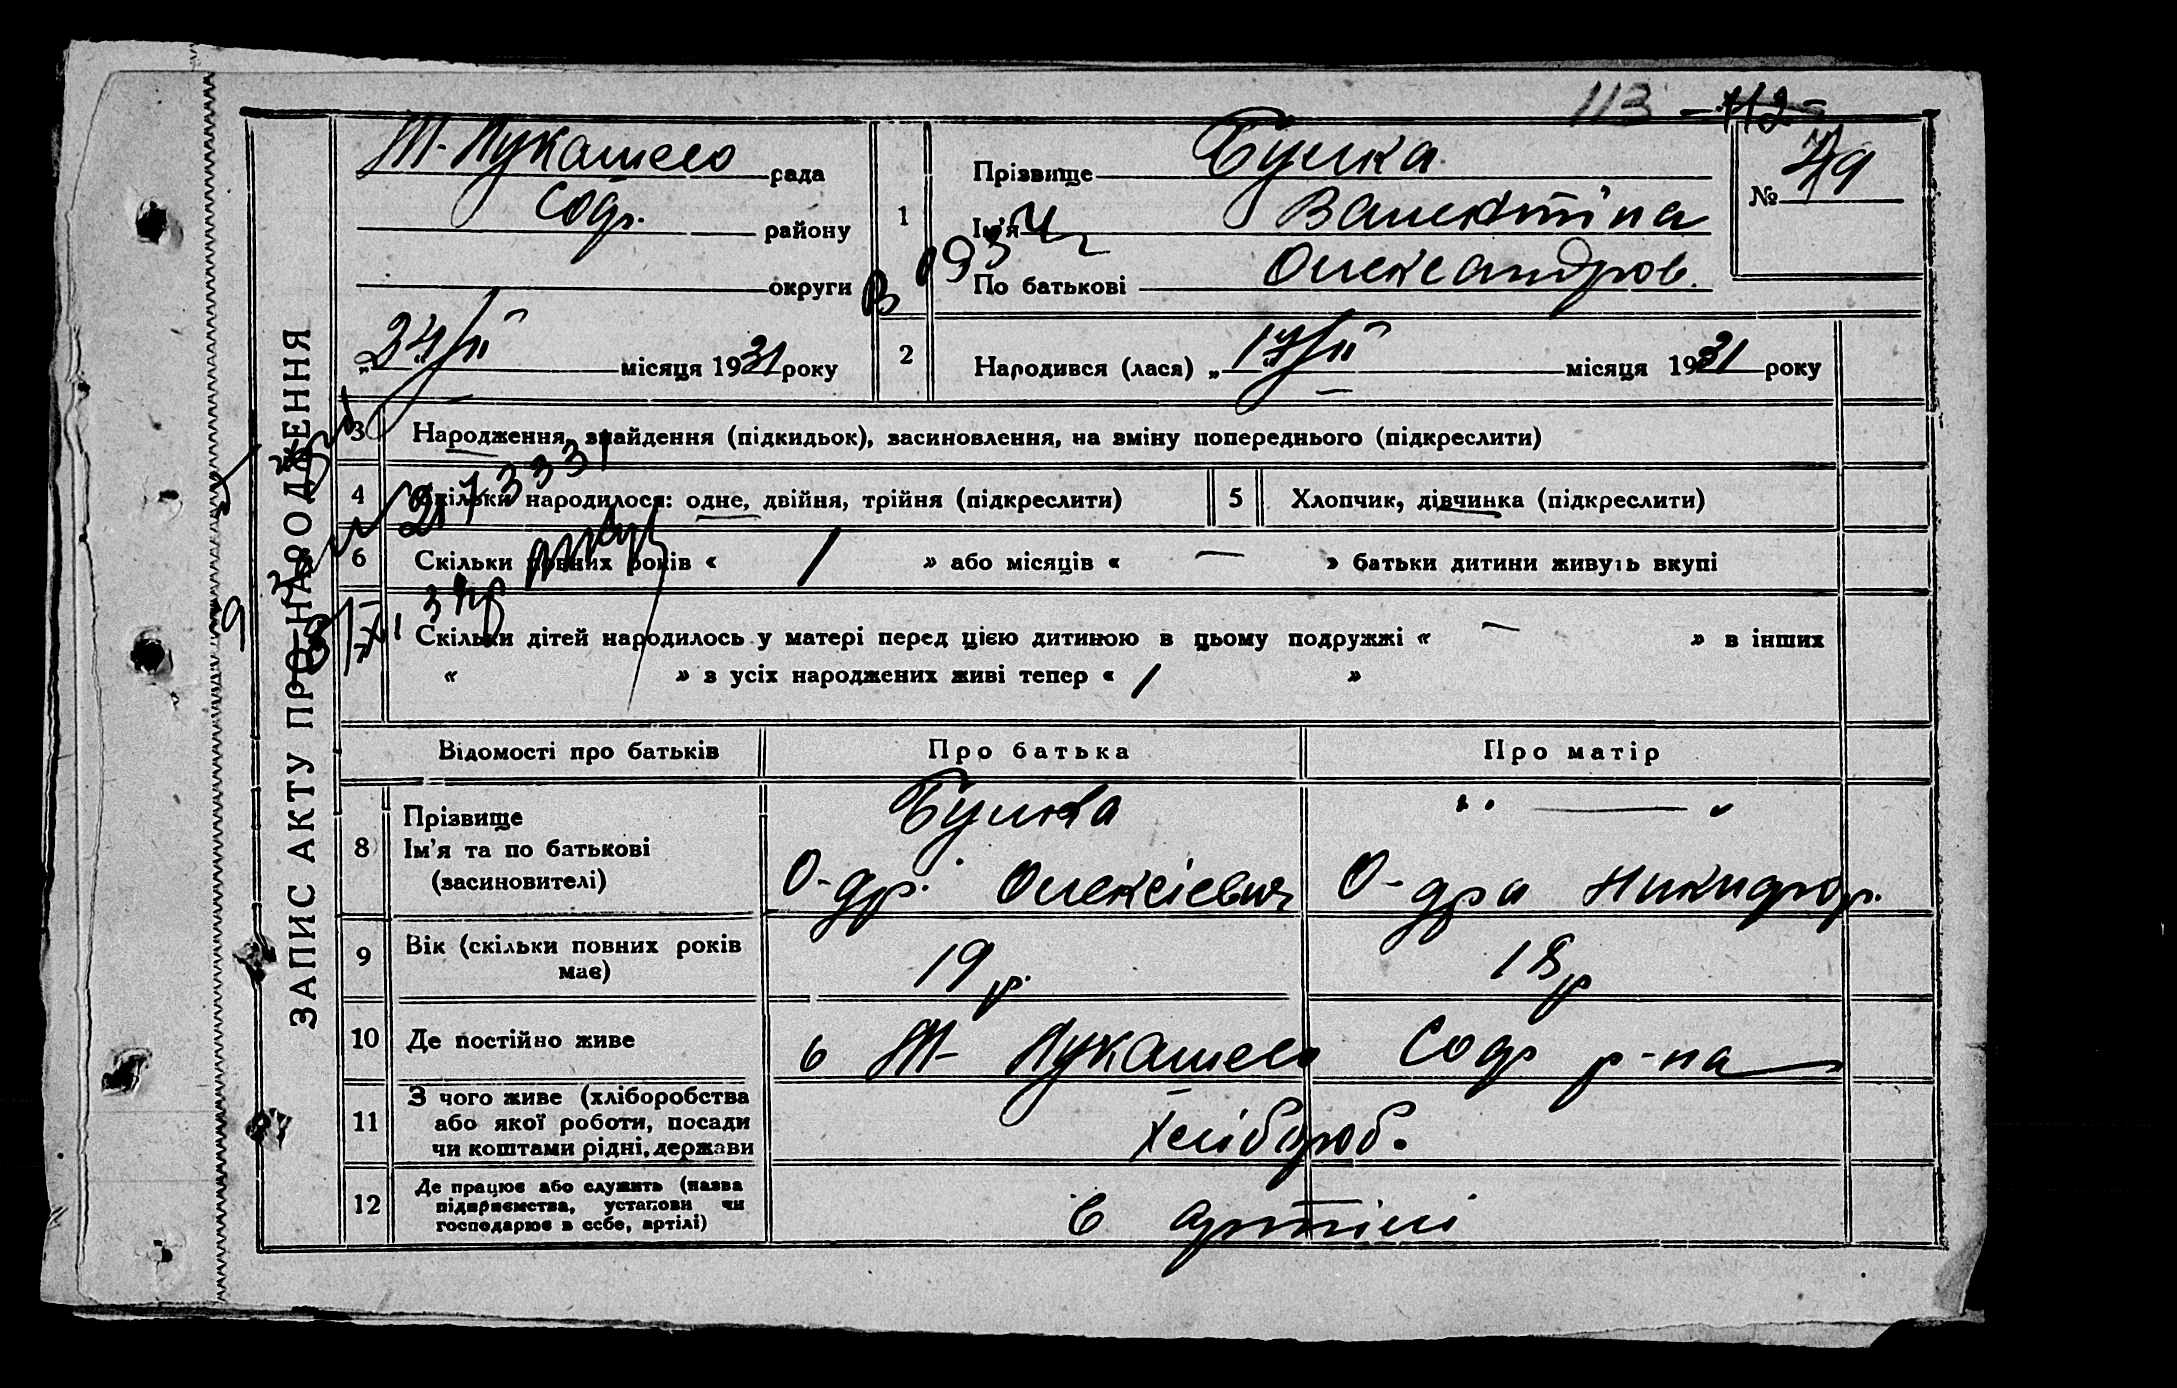 113 -112-
Т-Лукашево рада
Сод. району
округи
1
Прізвище Булка
Ім'я Валентіна
По батькові Олександров.
№ 49
„24/II місяця 1931 року
2
Народився (лася) „17/II місяця 1931 року
ЗАПИС АКТУ ПРО НАРОДЖЕННЯ
3 Народження, знайдення (підкидьок), засиновлення, на зміну попереднього (підкреслити)
4 Скільки народилося: одне, двійня, трійня (підкреслити)
5 Хлопчик, дівчинка (підкреслити)
6 Скільки повних років « 1 » або місяців « — » батьки дитини живуть вкупі
7 Скільки дітей народилось у матері перед цією дитиною в цьому подружжі « — » в інших
« » з усіх народжених живі тепер « 1 »
Відомості про батьків Про батька Про матір
8 Прізвище
Ім'я та по батькові
(засиновителі)
Булка
О-др. Олексієвич
„ — „
О-дра Никифор.
9 Вік (скільки повних років має)
19 р.
18 р
10 Де постійно живе
в Т- Лукашево Сод р-на
11 З чого живе (хліборобства
або якої роботи, посади
чи коштами рідні, держави
Хлібороб.
12 Де працює або служить (назва
підприємства, установи чи
господарює в себе, артілі)
в артілі